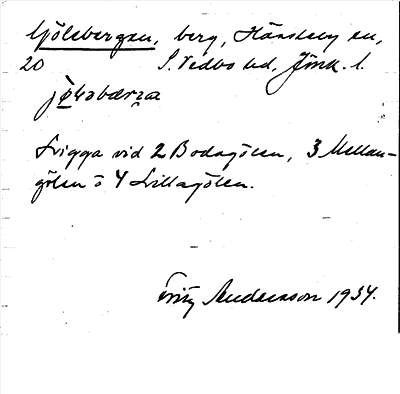 Gölebergen, berg, Hässleby sn,
20 S. Vedbo hd, Jönk. l.
Ligga vid 2 Bodagölen, 3 Mellan-
gölen o 4 Lillagölen.
Fritz Andersson 1934.